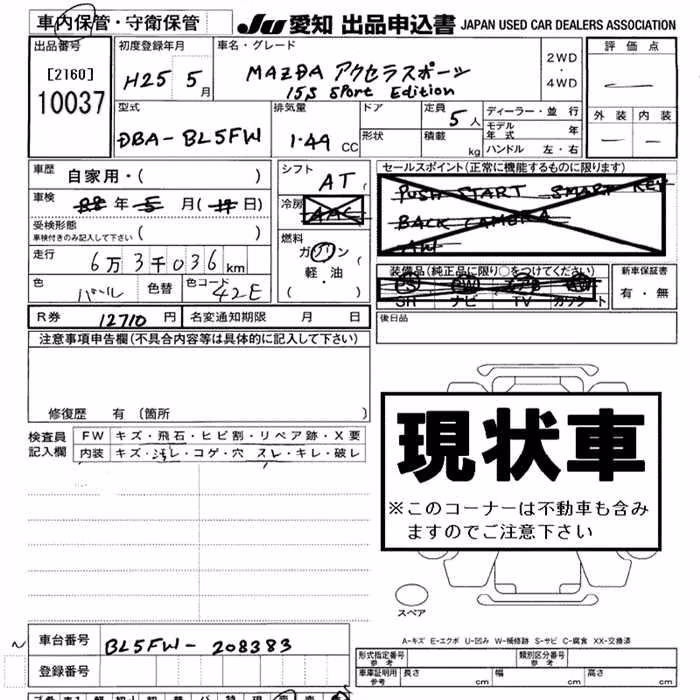 車内保管・守衛保管 JU 愛知 出品申込書 JAPAN USED CAR DEALERS ASSOCIATION
出品番号 初度登録年月 車名・グレード 2WD ・ 4WD 評価点
[2160] 10037 H25 5月 MAZDA アクセラスポーツ
15S SPort Edition
外装 内装
型式 排気量 ドア 定員 5人 ディーラー・並行
DBA-BL5FW 1.49 CC 形状 積載 kg モデル年式 年
ハンドル 左・右
車歴 自家用・( ) シフト AT セールスポイント(正常に機能するものに限ります)
車検 年 月( 日) 冷房 AAC PUSH START SMART KEY
受検形態 車検付きのみ記入して下さい ( ) BACK CAMERA
燃料 ガソリン AW
走行 6万3千036km 軽・油
( )
装備品(純正品に限り○をつけてください) 新車保証書
色 パール 色替 色コード 42E PS PW AW 有・無
SH ナビ TV
R券 12710円 名変通知期限 月 日 後日品
注意事項申告欄(不具合内容等は具体的に記入して下さい)
修復歴 有〔箇所 〕
検査員記入欄 FW キズ・飛石・ヒビ割・リペア跡・X要
内装 キズ・汚レ・コゲ・穴 スレ・キレ・破レ
現状車
※このコーナーは不動車も含み
ますのでご注意下さい
スペア
A-キズ E-エクボ U-凹み W-補修跡 S-サビ C-腐食 XX-交換済
車台番号 BL5FW-208383
形式指定番号 参考 類別区分番号 参考
登録番号 車庫証明用 参考 長さ cm 幅 cm 高さ cm